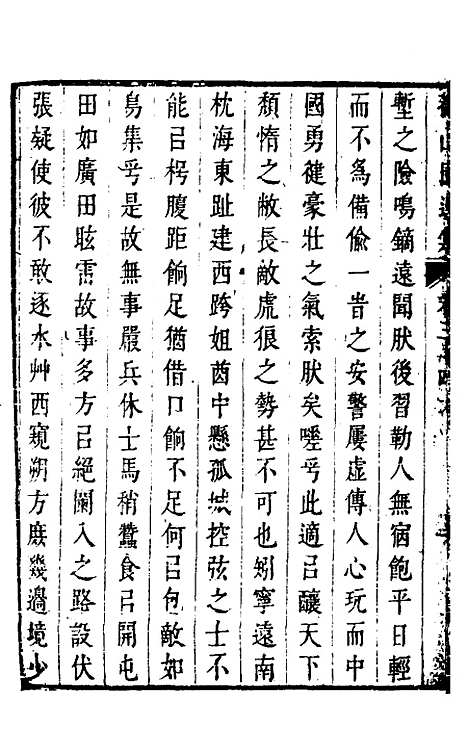 塹之險鳴鏑遠聞肰後習勒人無宿飽平日輕
而不爲備偷一旹之安警屢虛傳人心玩而中
國勇健豪壯之氣索肰矣嗟乎此適㠯釀天下
頹惰之敝長敵虎狼之勢甚不可也矧寧遠南
枕海東趾建西跨姐酋中懸孤城控弦之士不
能㠯枵腹距餉足猶借口餉不足何㠯包敵如
鳥集乎是故無事嚴兵休士馬稍蠶食㠯開屯
田如廣田眩需故事多方㠯絕闌入之路設伏
張疑使彼不敢逐水艸西窺朔方庶幾邊境少